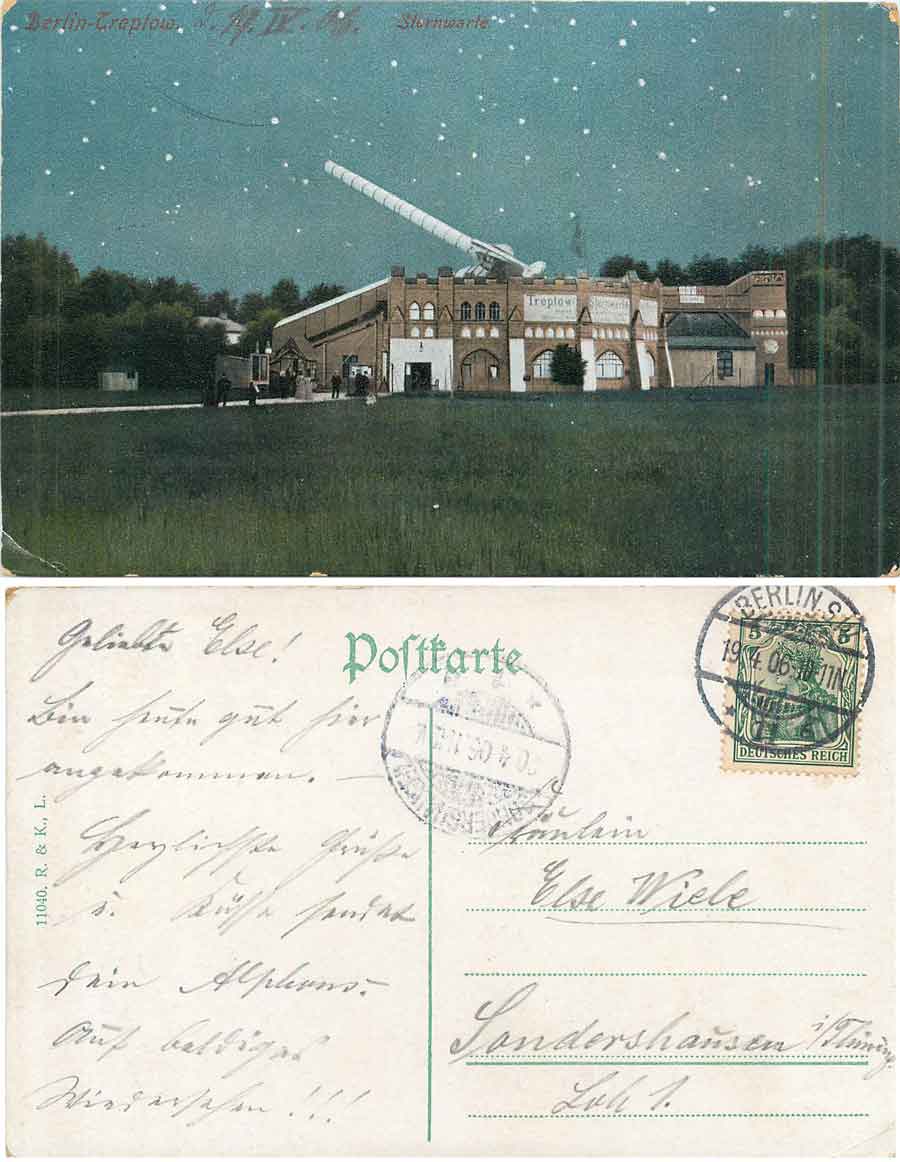 Berlin-Treptow. d. 19. IV. 06. Sternwarte
Treptow Sternwarte
Geliebte Else!
Bin heute gut hier
angekommen. —
Herzlichste Grüße
u. Küsse sendet
Dein Alphons.
Auf baldiges
Wiedersehen!!!
Postkarte
11040. R. & K., L.
BERLIN S.
19.4.06. 10-11N.
5 5
DEUTSCHES REICH
SONDERSHAUSEN
Fräulein
Else Wiele
Sondershausen i/Thüring.
Loh 1.